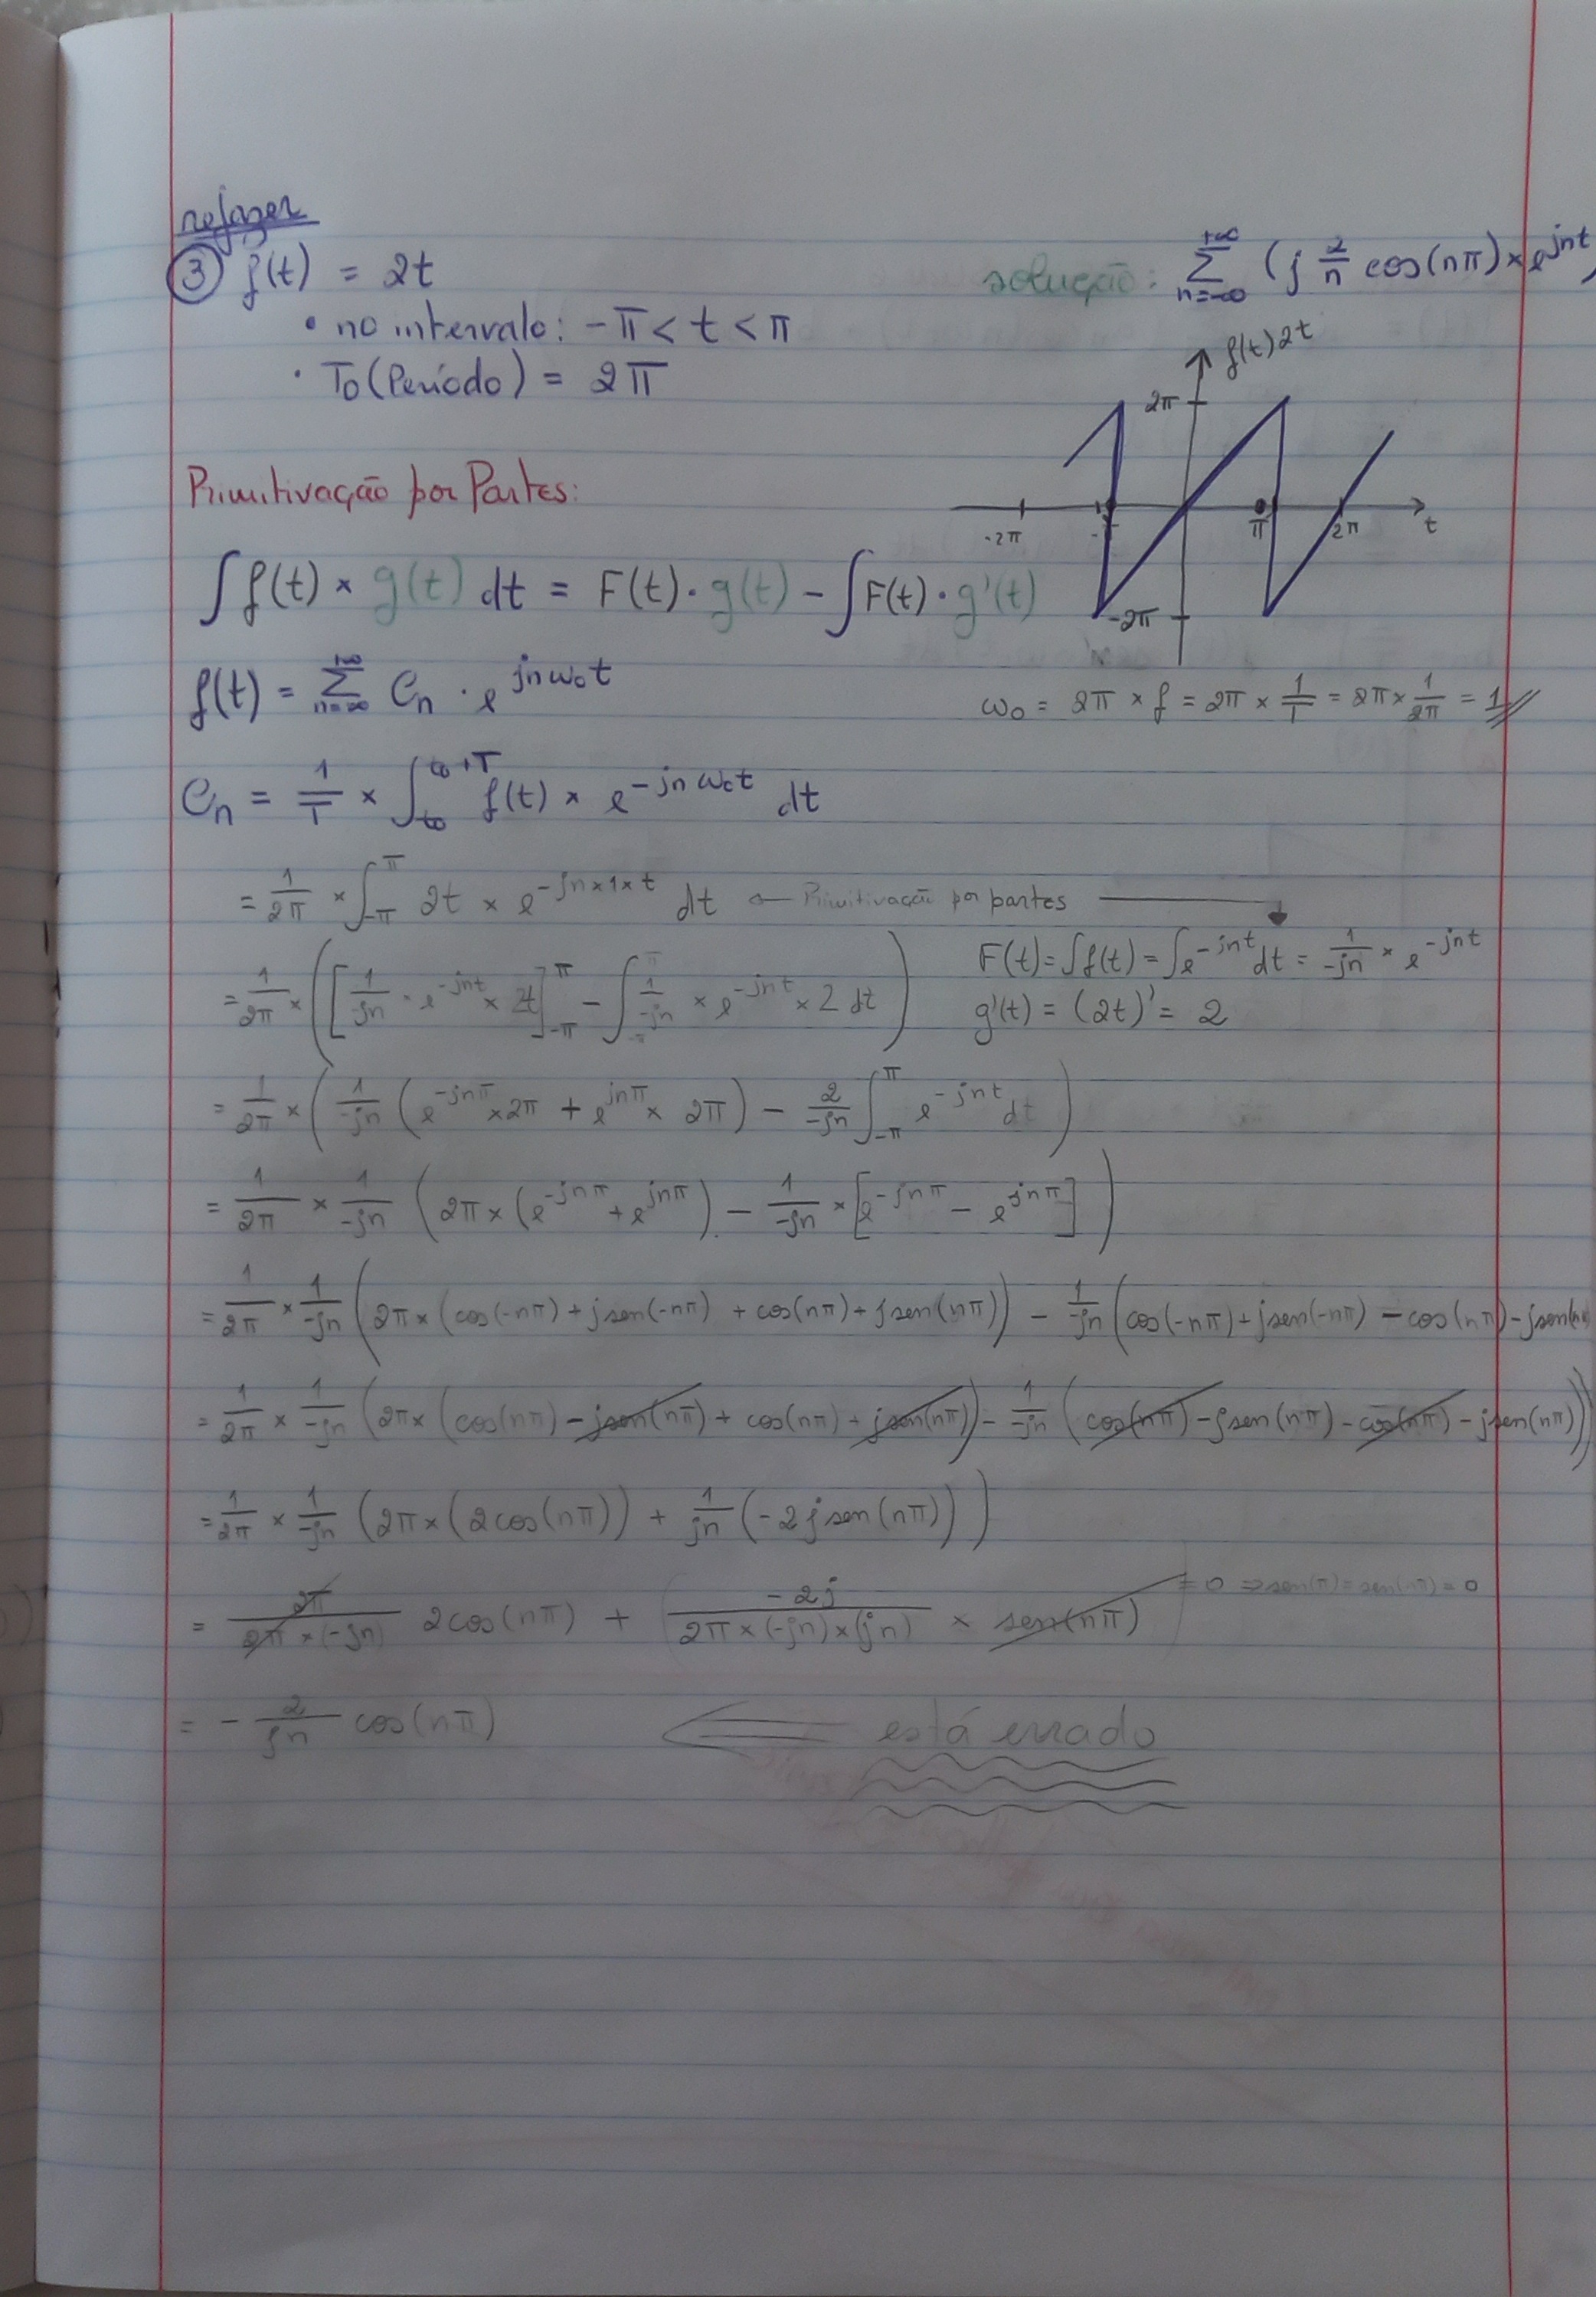 refazer
③ f(t) = 2t
solução: Σ_{n=-∞}^{+∞} (j 2/n cos(nπ) × e^{jnt})
• no intervalo: -π < t < π
• T0 (Período) = 2π
f(t) 2t
2π
-2π
-π
π
2π
t
-2π
Primitivação por Partes:
∫ f(t) × g(t) dt = F(t) · g(t) - ∫ F(t) · g'(t)
f(t) = Σ_{n=-∞}^{+∞} Cn · e^{jnω0t}
ω0 = 2π × f = 2π × 1/T = 2π × 1/2π = 1//
Cn = 1/T × ∫_{t0}^{t0+T} f(t) × e^{-jnω0t} dt
= 1/2π × ∫_{-π}^{π} 2t × e^{-jn×1×t} dt ← Primitivação por partes
F(t) = ∫f(t) = ∫e^{-jnt} dt = 1/-jn × e^{-jnt}
g'(t) = (2t)' = 2
= 1/2π × ([1/-jn · e^{-jnt} × 2t]_{-π}^{π} - ∫_{-π}^{π} 1/-jn × e^{-jnt} × 2 dt)
= 1/2π × (1/-jn (e^{-jnπ} × 2π + e^{jnπ} × 2π) - 2/-jn ∫_{-π}^{π} e^{-jnt} dt)
= 1/2π × 1/-jn (2π × (e^{-jnπ} + e^{jnπ}) - 1/-jn × [e^{-jnπ} - e^{jnπ}])
= 1/2π × 1/-jn (2π × (cos(-nπ) + jsen(-nπ) + cos(nπ) + jsen(nπ)) - 1/-jn (cos(-nπ) + jsen(-nπ) - cos(nπ) - jsen(nπ)
= 1/2π × 1/-jn (2π × (cos(nπ) - jsen(nπ) + cos(nπ) + jsen(nπ)) - 1/-jn (cos(nπ) - jsen(nπ) - cos(nπ) - jsen(nπ)))
= 1/2π × 1/-jn (2π × (2cos(nπ)) + 1/jn (-2jsen(nπ)))
= 2π/2π×(-jn) 2cos(nπ) + (-2j/2π×(-jn)×(jn) × sen(nπ)) = 0 ⇒ sen(π) = sen(nπ) = 0
= - 2/jn cos(nπ) ⇐ está errado